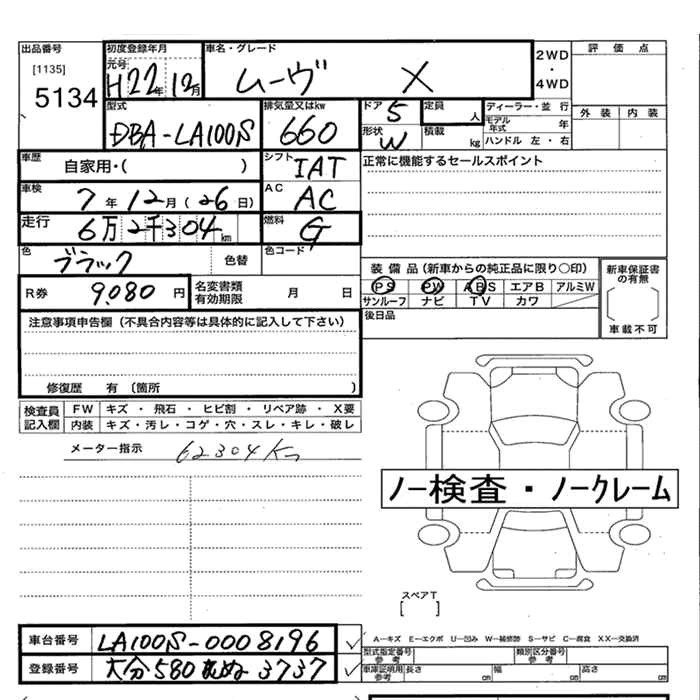 出品番号 初度登録年月 車名・グレード 2WD・4WD 評価点
[1135] 元号 外装 内装
5134 H22年12月 ムーヴ X
型式 排気量又はkw ドア 定員 人 ディーラー・並行
DBA-LA100S 660 5 モデル年式 年
形状 W 積載 kg ハンドル 左・右
車歴 自家用・( ) シフト IAT 正常に機能するセールスポイント
車検 7年12月(26日) AC AC
走行 6万2千304km 燃料 G
色 ブラック 色替 色コード
装備品(新車からの純正品に限り○印) 新車保証書の有無
R券 9,080円 名変書類有効期限 月 日
PS PW ABS エアB アルミW
サンルーフ ナビ TV カワ 車載不可
後日品
注意事項申告欄(不具合内容等は具体的に記入して下さい)
修復歴 有 〔箇所 〕
検査員記入欄 FW キズ・飛石・ヒビ割・リペア跡・X要
内装 キズ・汚レ・コゲ・穴・スレ・キレ・破レ
メーター指示 62304Km
ノー検査・ノークレーム
スペアT
[ ]
車台番号 LA100S-0008196 ✓
A-キズ E-エクボ U-凹み W-補修跡 S-サビ C-腐食 XX-交換済
型式指定番号 参考 類別区分番号 参考
登録番号 大分 580 ぬ 3737 ✓
車庫証明用 参考 長さ cm 幅 cm 高さ cm